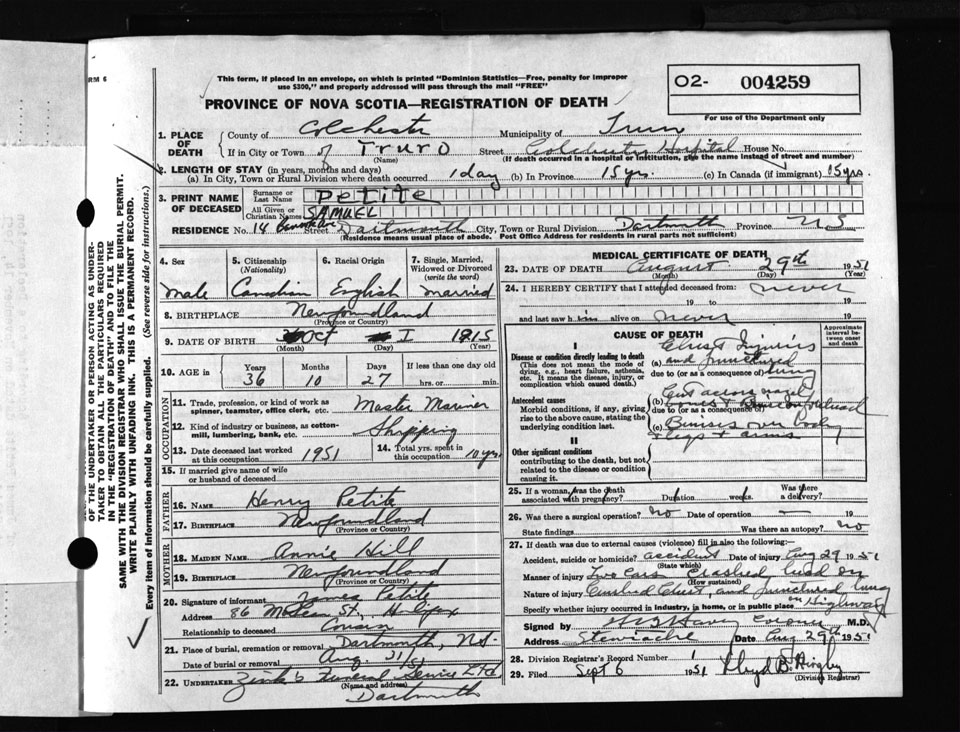 RM 6
This form, if placed in an envelope, on which is printed "Dominion Statistics—Free, penalty for improper
use $300," and properly addressed will pass through the mail "FREE"
PROVINCE OF NOVA SCOTIA—REGISTRATION OF DEATH
O2- 004259
For use of the Department only
1. PLACE OF DEATH
County of Colchester Municipality of Truro
If in City or Town of TRURO Street Colchester Hospital House No.
(Name) (If death occurred in a hospital or institution, give the name instead of street and number)
2. LENGTH OF STAY (in years, months and days)
(a) In City, Town or Rural Division where death occurred 1 day (b) In Province 15 yrs. (c) In Canada (if immigrant) 15 yrs
3. PRINT NAME OF DECEASED
Surname or Last Name Petite
All Given or Christian Names SAMUEL
RESIDENCE No. 14 Street Dartmouth City, Town or Rural Division Dartmouth Province N S
(Residence means usual place of abode. Post Office Address for residents in rural parts not sufficient)
4. Sex male
5. Citizenship (Nationality) Canadian
6. Racial Origin English
7. Single, Married, Widowed or Divorced (write the word) married
8. BIRTHPLACE Newfoundland
(Province or Country)
9. DATE OF BIRTH OCT 1 1915
(Month) (Day) (Year)
10. AGE in Years 36 Months 10 Days 27 If less than one day old
hrs. or min.
OCCUPATION
11. Trade, profession, or kind of work as spinner, teamster, office clerk, etc. Master Mariner
12. Kind of industry or business, as cotton-mill, lumbering, bank, etc. Shipping
13. Date deceased last worked at this occupation 1951
14. Total yrs. spent in this occupation 10 yrs.
15. If married give name of wife or husband of deceased
FATHER
16. NAME Henry Petite
17. BIRTHPLACE Newfoundland
(Province or Country)
MOTHER
18. MAIDEN NAME Annie Hill
19. BIRTHPLACE Newfoundland
(Province or Country)
20. Signature of informant James Petite
Address 86 McLean St. Halifax
Relationship to deceased Cousin
21. Place of burial, cremation or removal Dartmouth, N.S.
Date of burial or removal Aug. 31/51
22. UNDERTAKER Zink's Funeral Service Ltd
(Name and address)
Dartmouth
MEDICAL CERTIFICATE OF DEATH
23. DATE OF DEATH August 29th 1951
(Month) (Day) (Year)
24. I HEREBY CERTIFY that I attended deceased from never
19 to 19
and last saw him alive on never 19
CAUSE OF DEATH
Approximate interval between onset and death
I
Disease or condition directly leading to death
(This does not mean the mode of dying, e.g., heart failure, asthenia, etc. It means the disease, injury, or complication which caused death.)
(a) Chest Injuries and punctured lung
due to (or as a consequence of)
Antecedent causes
Morbid conditions, if any, giving rise to the above cause, stating the underlying condition last.
(b) Cut across nasal bones +
due to (or as a consequence of)
(c) Bruises over body legs + arms
II
Other significant conditions
contributing to the death, but not related to the disease or condition causing it.
25. If a woman, was the death associated with pregnancy? Duration weeks. Was there a delivery?
26. Was there a surgical operation? no Date of operation — 19
State findings Was there an autopsy? no
27. If death was due to external causes (violence) fill in also the following:—
Accident, suicide or homicide? accident Date of injury Aug 29 1951
(State which)
Manner of injury Two Cars Crashed head on
(How sustained)
Nature of injury Crushed Chest, and punctured lung
Specify whether injury occurred in industry, in home, or in public place on Highway
Signed by Coroner M.D.
Address Stewiacke Date Aug 29th 1951
28. Division Registrar's Record Number 1
29. Filed Sept 6 1951 Lloyd B.
(Division Registrar)
OF THE UNDERTAKER OR PERSON ACTING AS UNDER-
TAKER TO OBTAIN ALL THE PARTICULARS REQUIRED
IN THE "REGISTRATION OF DEATH" AND TO FILE THE
SAME WITH THE DIVISION REGISTRAR WHO SHALL ISSUE THE BURIAL PERMIT.
WRITE PLAINLY WITH UNFADING INK. THIS IS A PERMANENT RECORD.
Every item of Information should be carefully supplied. (See reverse side for instructions.)